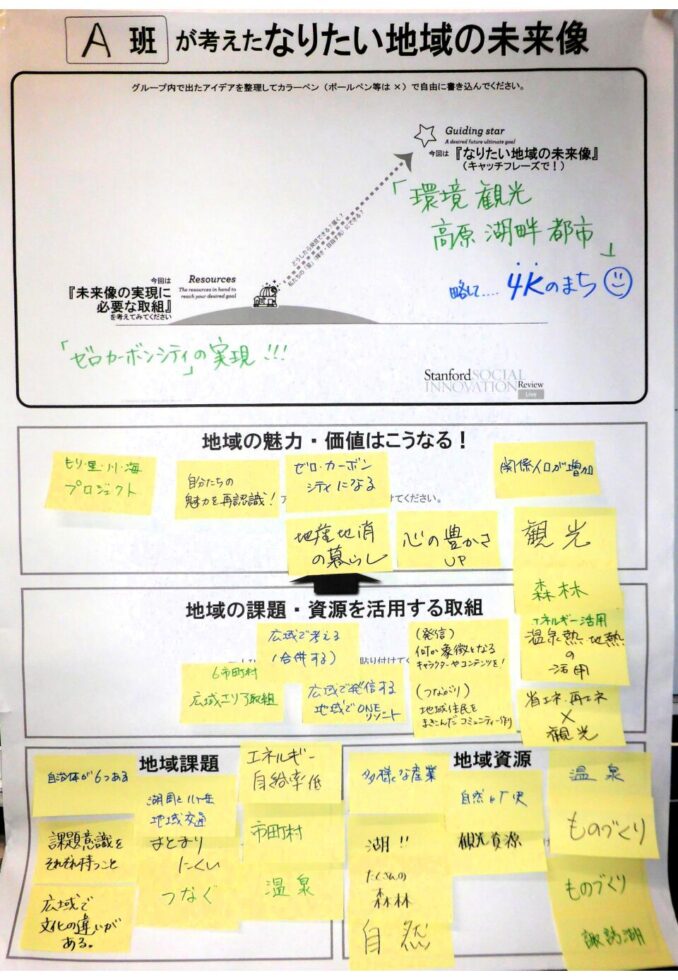 A 班 が考えた なりたい地域の未来像
グループ内で出たアイデアを整理してカラーペン(ボールペン等は×)で自由に書き込んでください。
Guiding star
A desired future ultimate goal
今回は『なりたい地域の未来像』
(キャッチフレーズで!)
「環境 観光
高原 湖畔 都市」
略して.... 4Kのまち
今回は
『未来像の実現に
必要な取組』
を考えてみてください
Resources
The resources in hand to
reach your desired goal
「ゼロカーボンシティ」の実現!!!
Stanford SOCIAL
INNOVATION Review
Live
地域の魅力・価値はこうなる!
もり・里・川・海
プロジェクト
自分たちの
魅力を再認識!
ゼロ・カーボン
シティになる
関係人口が増加
けてください。
地産地消
の暮らし
心の豊かさ
UP
観光
森林
地域の課題・資源を活用する取組
広域で考える
(合併する)
貼り付けてく
6市町村
広域エリア取組
広域で発信する
地域でONE
リゾート
(発信)
何か象徴となる
キャラクターやコンテンツを!
(つながり)
地域住民を
まきこんだコミュニティー作り
エネルギー活用
温泉熱・地熱
の
活用
省エネ・再エネ
×
観光
地域課題
自治体が6つある
湖周と八ヶ岳
地域交通
エネルギー
自給率低
課題意識を
それぞれ持つこと
まとまり
にくい
つなぐ
市町村
温泉
広域で
文化の違いが
ある。
地域資源
多様な産業
湖!!
たくさんの
森林
自然
観光資源
温泉
ものづくり
ものづくり
諏訪湖